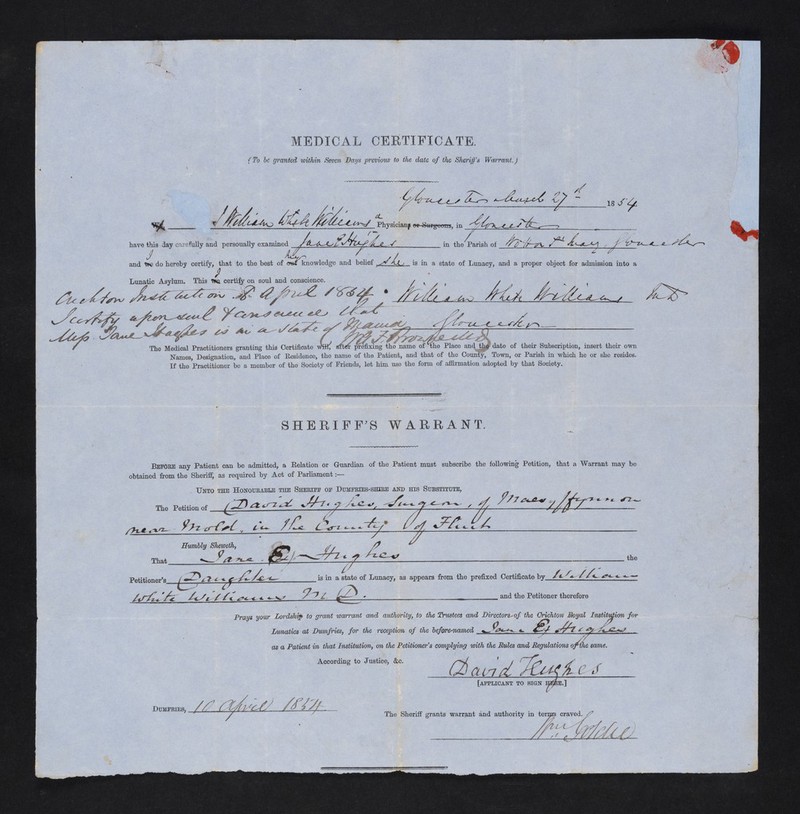 MEDICAL CERTIFICATE.
(To be granted within Seven Days previous to the date of the Sheriff's Warrant.)
Gloucester March 27th 1854
We I William White Williams a Physicians or Surgeons, in Gloucester
have this day carefully and personally examined Jane E Hughes in the Parish of
and I do hereby certify, that to the best of my knowledge and belief she is in a state of Lunacy, and a proper object for admission into a
Lunatic Asylum. This I certify on soul and conscience.
Crichton Institution 8 April 1854. William White Williams MD
I certify upon soul & conscience that Gloucester
Miss Jane Hughes is in a state of Mania
The Medical Practitioners granting this Certificate will, after prefixing the name of the Place and the date of their Subscription, insert their own
Names, Designation, and Place of Residence, the name of the Patient, and that of the County, Town, or Parish in which he or she resides.
If the Practitioner be a member of the Society of Friends, let him use the form of affirmation adopted by that Society.
SHERIFF'S WARRANT.
BEFORE any Patient can be admitted, a Relation or Guardian of the Patient must subscribe the following Petition, that a Warrant may be
obtained from the Sheriff, as required by Act of Parliament:—
UNTO THE HONOURABLE THE SHERIFF OF DUMFRIES-SHIRE AND HIS SUBSTITUTE,
The Petition of David Hughes, Surgeon, of Maes y ffynnon
near Mold, in the County of Flint
Humbly Sheweth,
That Jane E. Hughes the
Petitioner's Daughter is in a state of Lunacy, as appears from the prefixed Certificate by William
White Williams M D. and the Petitoner therefore
Prays your Lordship to grant warrant and authority, to the Trustees and Directors of the Crichton Royal Institution for
Lunatics at Dumfries, for the reception of the before-named Jane E. Hughes
as a Patient in that Institution, on the Petitioner's complying with the Rules and Regulations of the same.
According to Justice, &c.
David Hughes
[APPLICANT TO SIGN HERE.]
DUMFRIES, 10 April 1854
The Sheriff grants warrant and authority in terms craved.
Wm Goldie